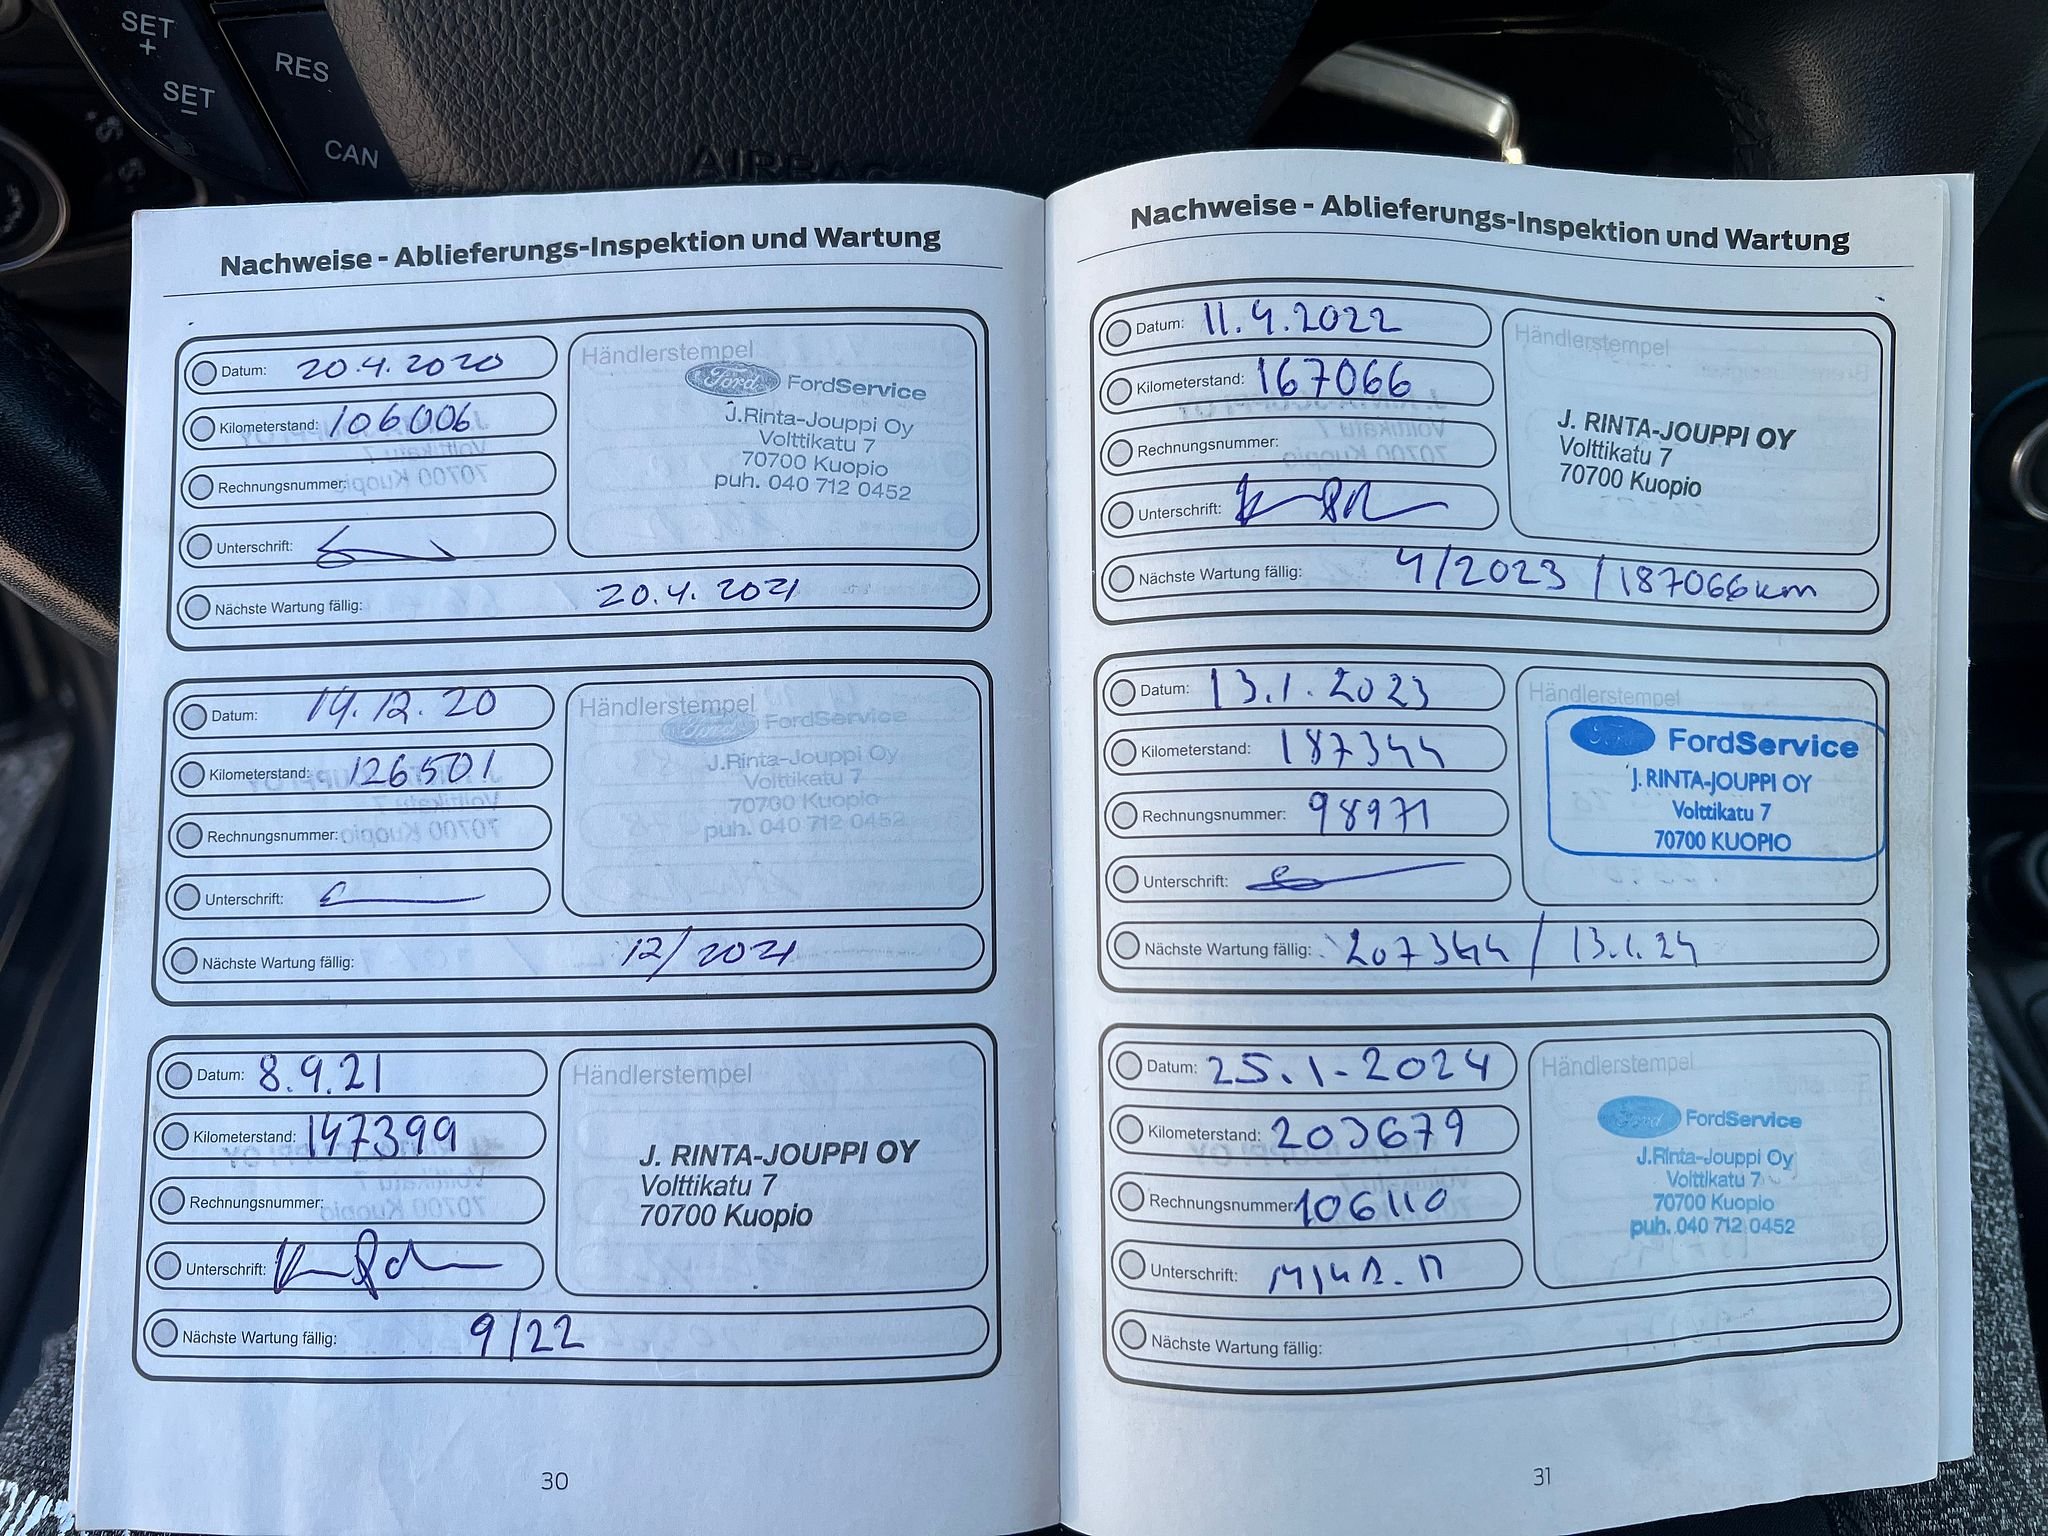 SET
+
SET
–
RES
CAN
AIRBAG
Nachweise - Ablieferungs-Inspektion und Wartung
Datum: 20.4.2020
Kilometerstand: 106006
Rechnungsnummer:
Unterschrift:
Händlerstempel
Ford FordService
J.Rinta-Jouppi Oy
Volttikatu 7
70700 Kuopio
puh. 040 712 0452
Nächste Wartung fällig: 20.4.2021
Datum: 14.12.20
Kilometerstand: 126501
Rechnungsnummer:
Unterschrift:
Händlerstempel
Ford FordService
J.Rinta-Jouppi Oy
Volttikatu 7
70700 Kuopio
puh. 040 712 0452
Nächste Wartung fällig: 12/2021
Datum: 8.9.21
Kilometerstand: 147399
Rechnungsnummer:
Unterschrift:
Händlerstempel
J. RINTA-JOUPPI OY
Volttikatu 7
70700 Kuopio
Nächste Wartung fällig: 9/22
30
Nachweise - Ablieferungs-Inspektion und Wartung
Datum: 11.4.2022
Kilometerstand: 167066
Rechnungsnummer:
Unterschrift:
Händlerstempel
J. RINTA-JOUPPI OY
Volttikatu 7
70700 Kuopio
Nächste Wartung fällig: 4/2023 / 187066km
Datum: 13.1.2023
Kilometerstand: 187344
Rechnungsnummer: 98971
Unterschrift:
Händlerstempel
Ford FordService
J. RINTA-JOUPPI OY
Volttikatu 7
70700 KUOPIO
Nächste Wartung fällig: 207344 / 13.1.24
Datum: 25.1.2024
Kilometerstand: 203679
Rechnungsnummer: 106110
Unterschrift:
Händlerstempel
Ford FordService
J.Rinta-Jouppi Oy
Volttikatu 7
70700 Kuopio
puh. 040 712 0452
Nächste Wartung fällig:
31